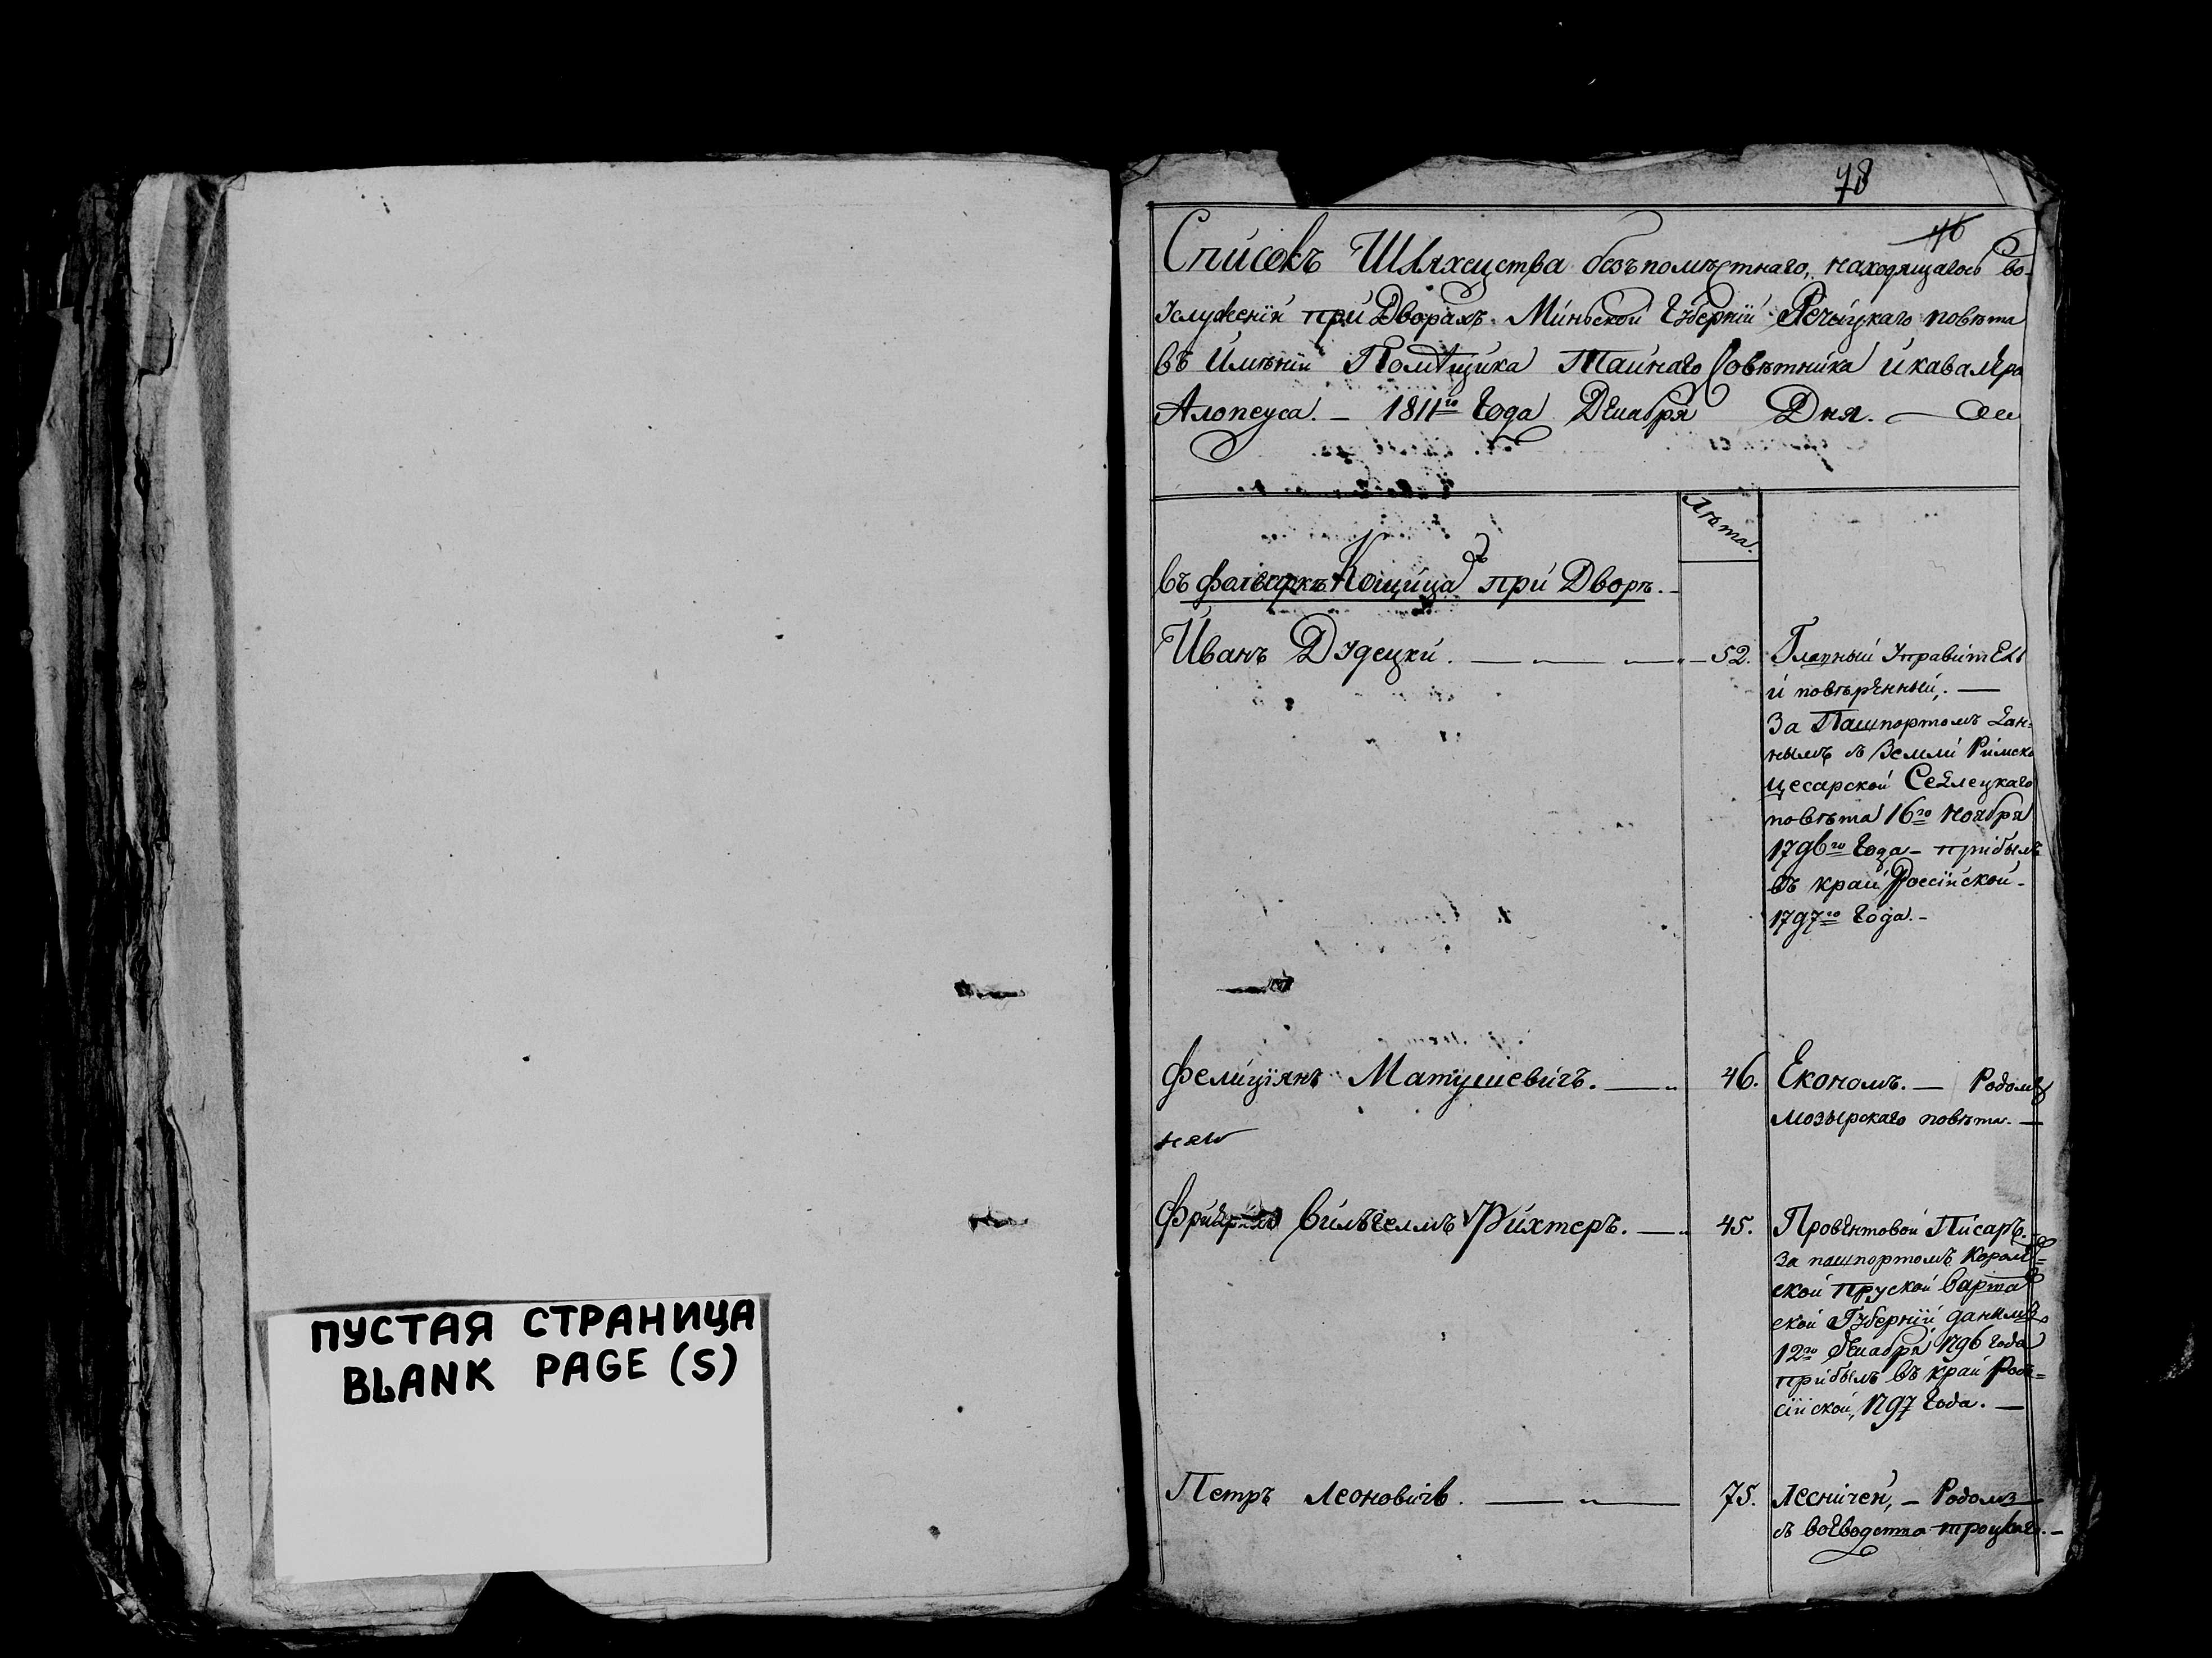 78
46
Списокъ Шляхецства безъпомѣстнаго, находящагось во
Услуженіи при Дворахъ Минской Губерніи Речыцкаго повѣта
въ Имѣніи Помѣщика Тайнаго Совѣтника и кавалера
Алопеуса. — 1811го Года Декабря Дня. —
Лѣта.
въ фольваркѣ Кощица при Дворѣ. —
Иванъ Дудецки. — 52. Главный Управитель
и повѣренный, —
За Пашпортомъ дан=
нымъ съ Земли Римско
цесарской Седлецкаго
повѣта 16го Ноября
1796го Года — прибылъ
въ край Россійской —
1797го Года. —
Фелиціянъ Матушевичъ. — 46. Економъ. — Родомъ
Мозырскаго повѣта. —
Фридрихъ Вильгелмъ Рихтеръ. — 45. Провентовой Писаръ. —
За пашпортомъ Королев=
ской Пруской Варша
ской Губерніи данымъ
12го Декабря 1796 Года
прибылъ въ край Рос=
сійской, 1797 Года. —
Петръ Леоновичъ. — 75. Лесничей, — Родомъ
съ воеводства троцкаго. —
ПУСТАЯ СТРАНИЦА
BLANK PAGE (S)